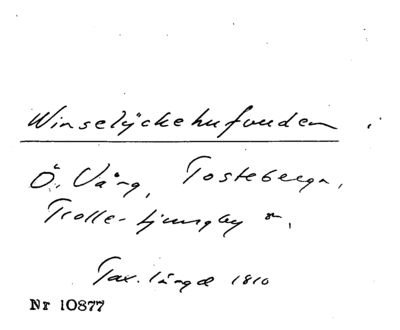 Winselyckehufvuden.
Ö. Vång, Tosteberga,
Trolle-Ljungby sn.
Tax. längd 1810
Nr 10877